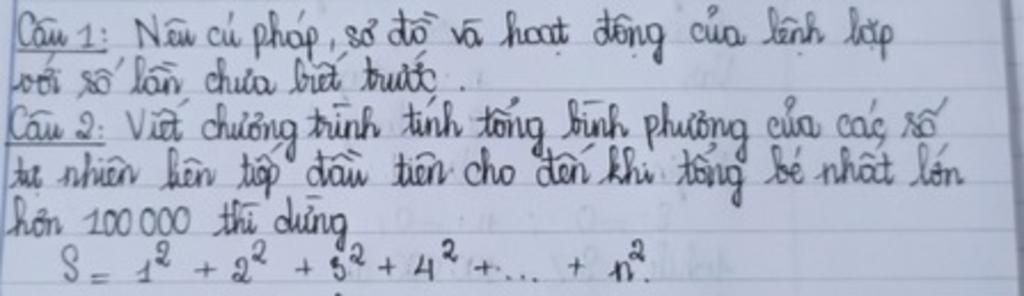 Câu 1: Nêu cú pháp, sơ đồ và hoạt động của lệnh lặp
với số lần chưa biết trước.
Câu 2: Viết chương trình tính tổng bình phương của các số
tự nhiên liên tiếp đầu tiên cho đến khi tổng bé nhất lớn
hơn 100 000 thì dừng
S = 1² + 2² + 3² + 4² + ... + n².